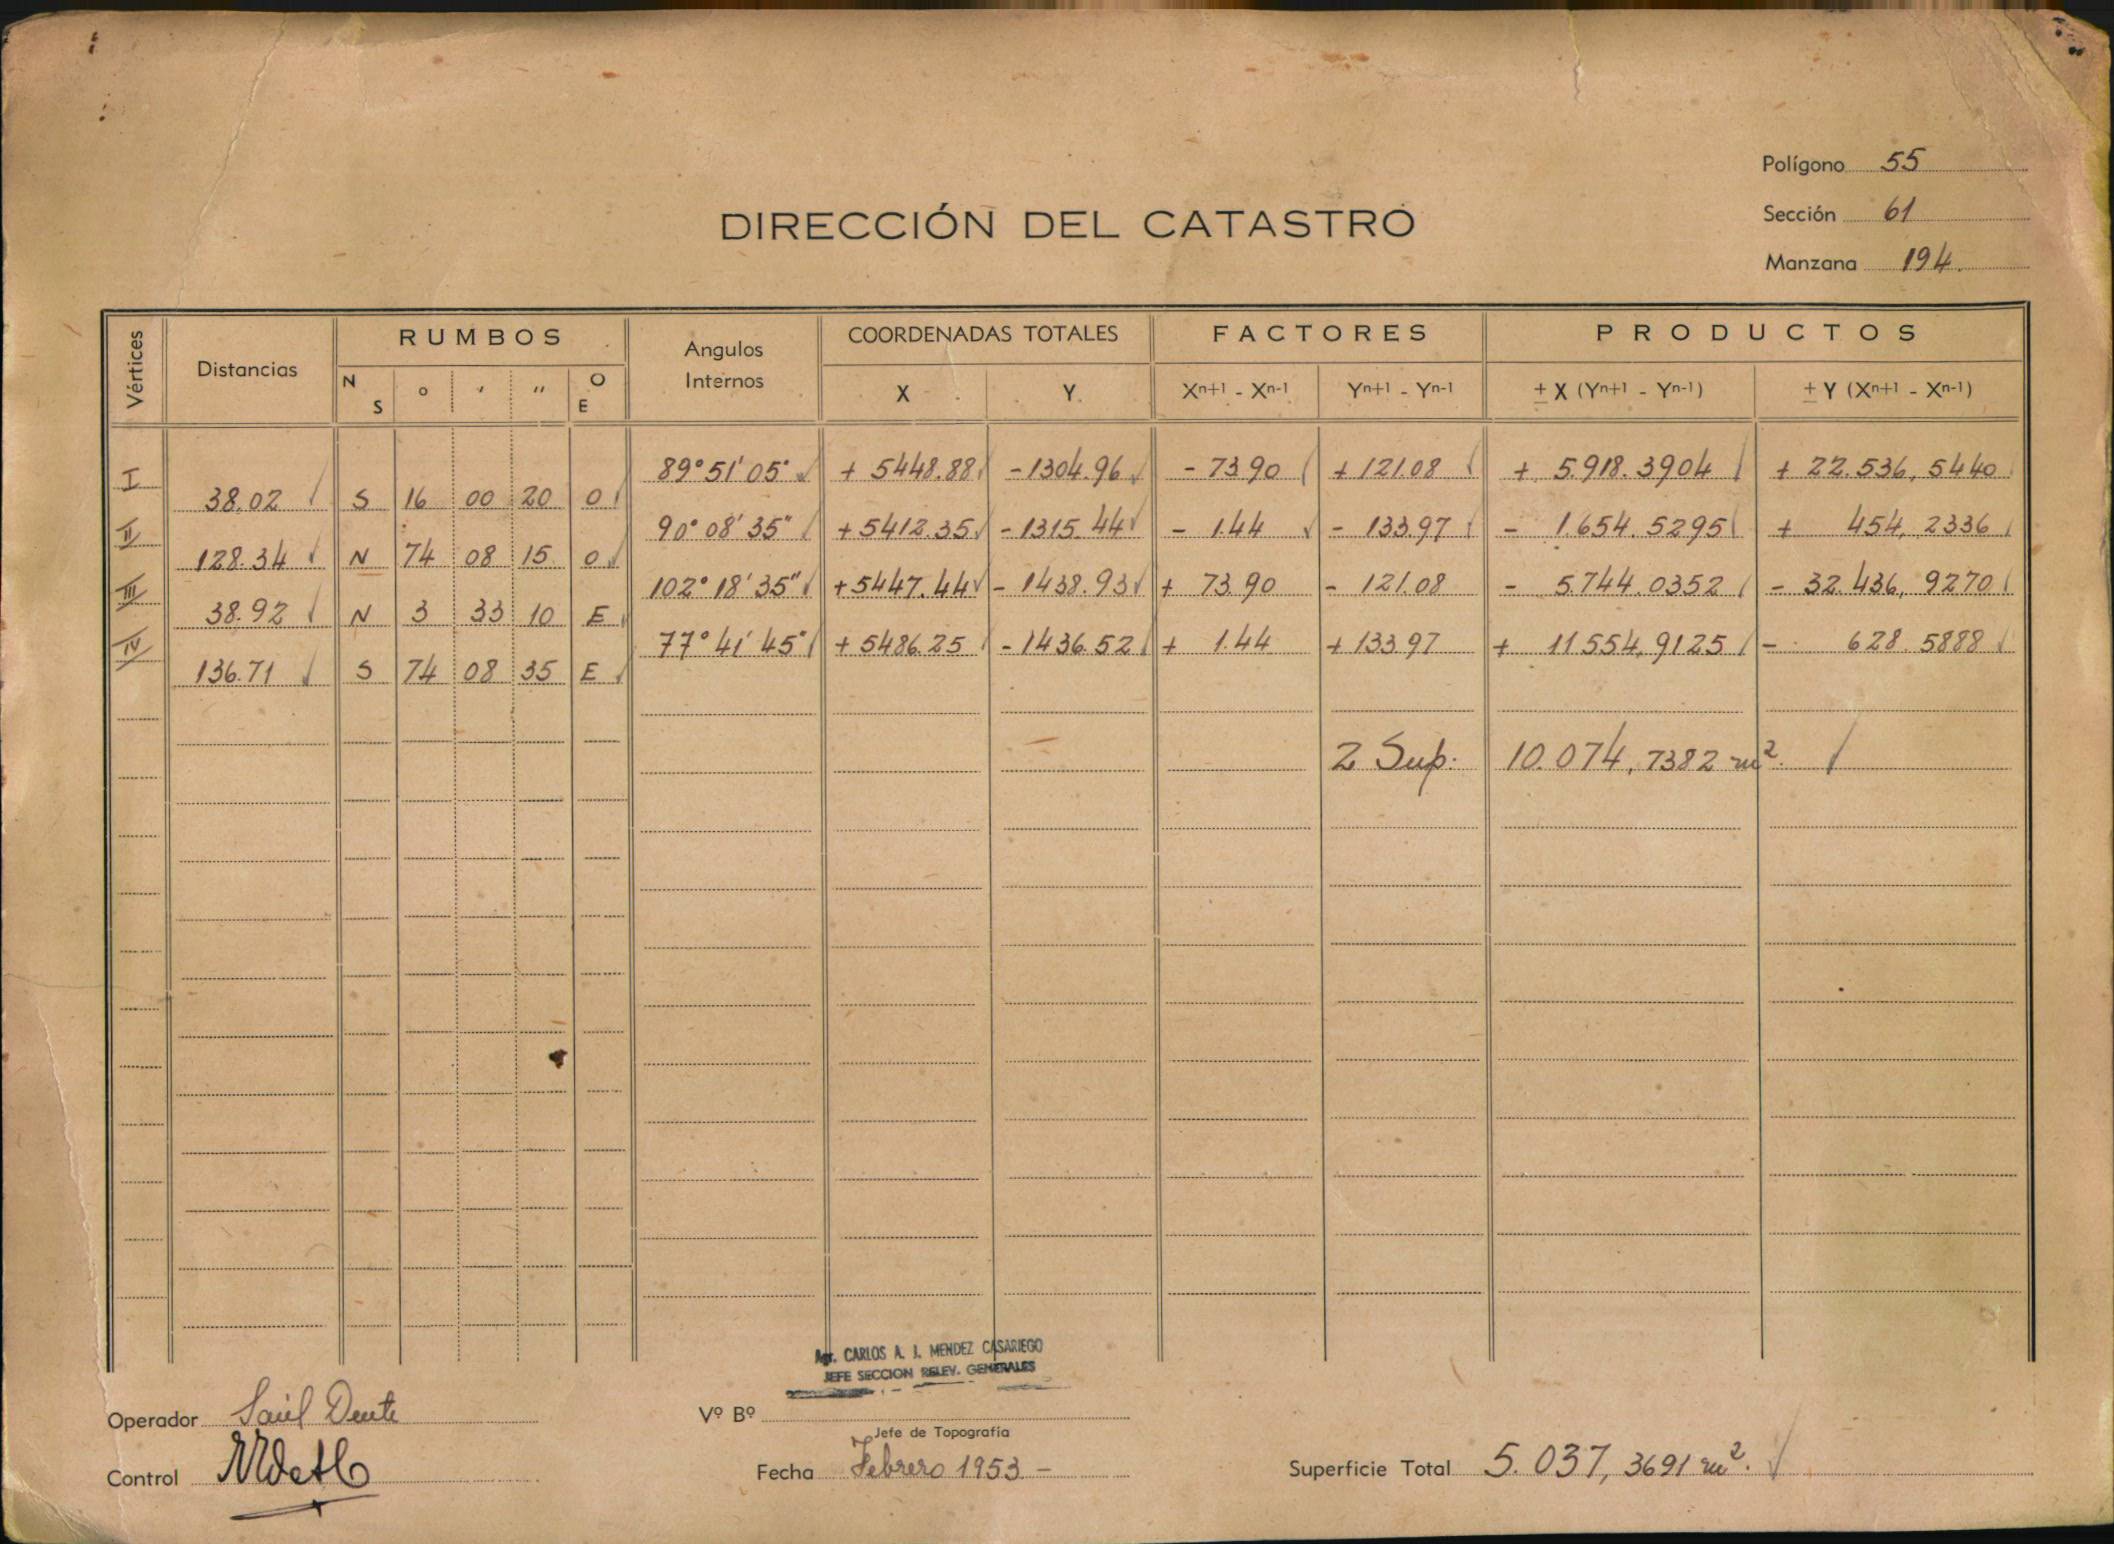 Polígono 55
Sección 61
Manzana 194.
DIRECCIÓN DEL CATASTRO
Vértices Distancias RUMBOS Angulos Internos COORDENADAS TOTALES FACTORES PRODUCTOS
N S ° ' " O E X Y Xn+1 - Xn-1 Yn+1 - Yn-1 ± X (Yn+1 - Yn-1) ± Y (Xn+1 - Xn-1)
I 89° 51' 05" + 5448.88 - 1304.96 - 73.90 + 121.08 + 5.918.3904 + 22.536,5440
38.02 S 16 00 20 O
II 90° 08' 35" + 5412.35 - 1315.44 - 1.44 - 133.97 - 1.654.5295 + 454,2336
128.34 N 74 08 15 O
III 102° 18' 35" + 5447.44 - 1438.93 + 73.90 - 121.08 - 5.744.0352 - 32.436,9270
38.92 N 3 33 10 E
IV 77° 41' 45" + 5486.25 - 1436.52 + 1.44 + 133.97 + 11.554,9125 - 628.5888
136.71 S 74 08 35 E
2 Sup. 10.074,7382 m².
Agr. CARLOS A. J. MENDEZ CASARIEGO
JEFE SECCION RELEV. GENERALES
Operador Saúl Dente
Vº Bº
Jefe de Topografía
Control
Fecha Febrero 1953 -
Superficie Total 5.037,3691 m².